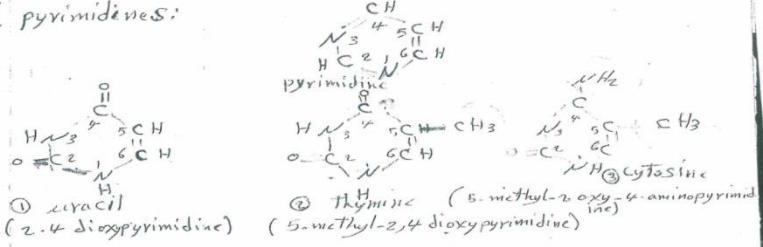 pyrimidines:
CH
N 3 4 5 CH
HC 2 1 6 CH
N
pyrimidine
O
C
HN 3 4 5 CH
O=C 2 1 6 CH
N
H
① uracil
(2.4 dioxypyrimidine)
O
C
HN 3 4 5 C CH3
O C 2 6 CH
N
H
② Thymine
(5-methyl-2,4 dioxypyrimidine)
NH2
C
N3 4 5C CH3
O=C 2 6C
NH
③ cytosine
(5-methyl-2 oxy-4-aminopyrimidine)